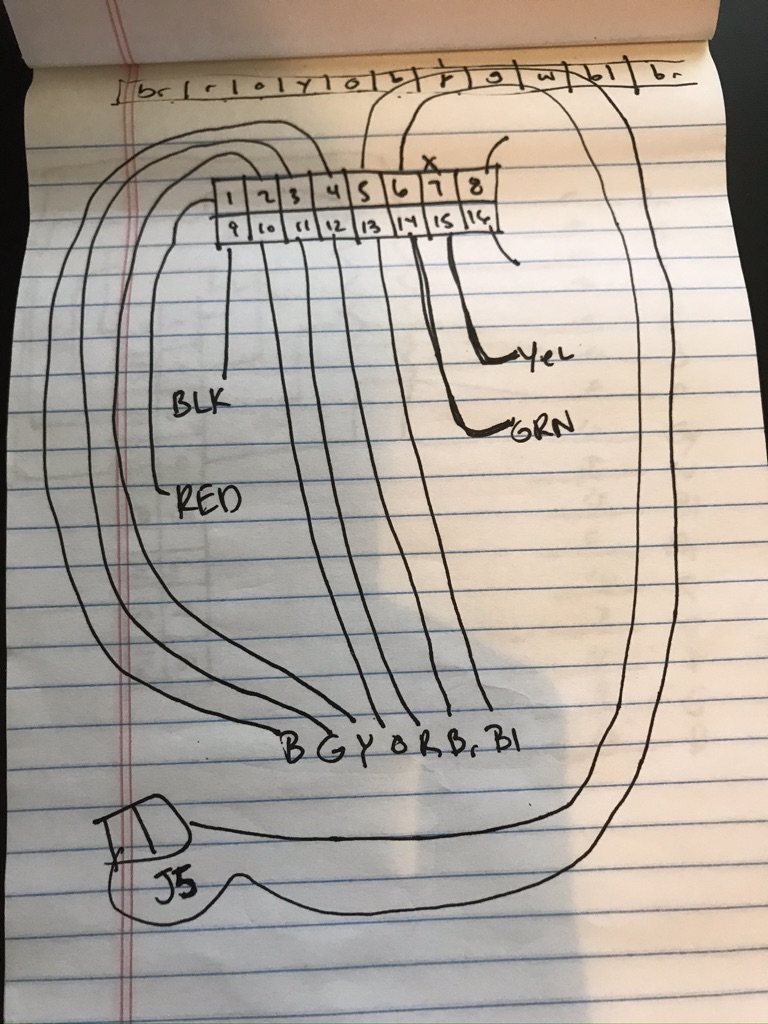 br r o y o b r g w bl br
X
1 2 3 4 5 6 7 8
9 10 11 12 13 14 15 16
Yel
BLK
GRN
RED
B G Y O R Br Bl
J5